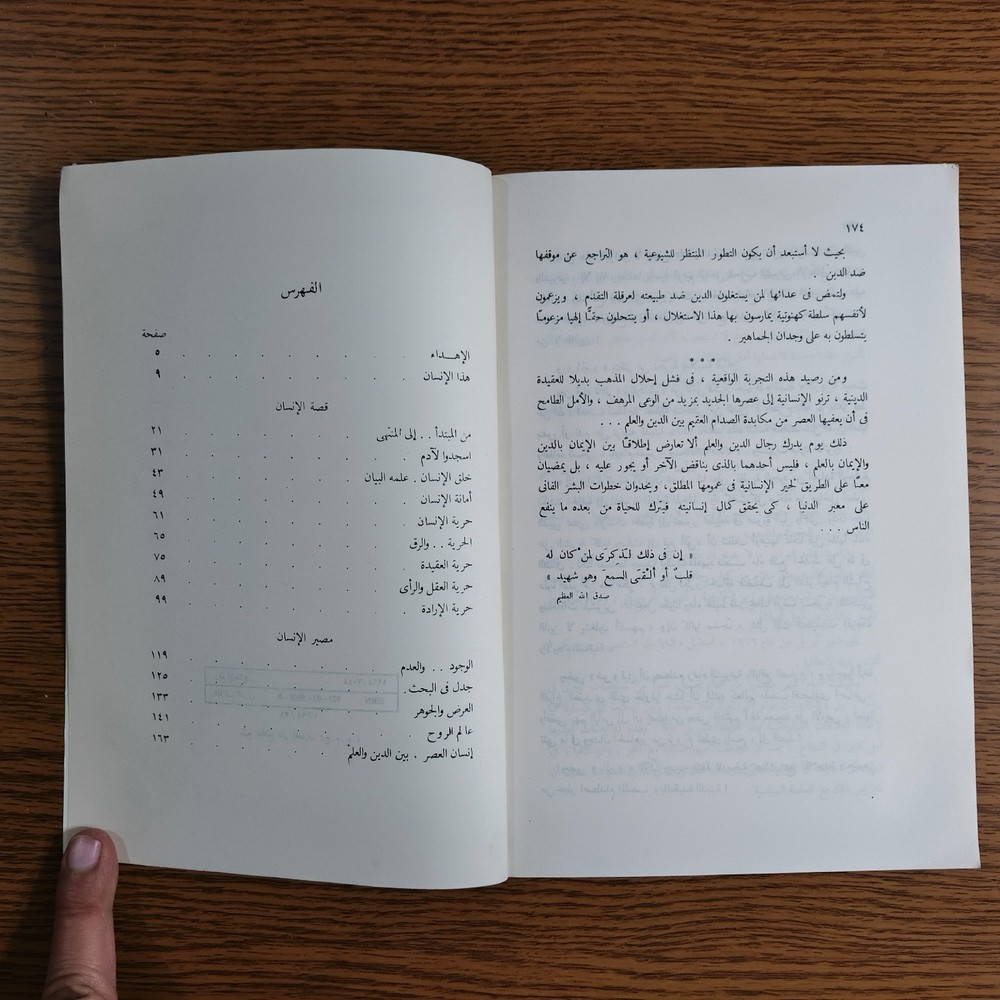 ١٧٤
بحيث لا أستبعد أن يكون التطور المنتظر للشيوعية ، هو التراجع عن موقفها
ضد الدين .
ولتمض فى عدائها لمن يستغلون الدين ضد طبيعته لعرقلة التقدم ، ويزعمون
لأنفسهم سلطة كهنوتية يمارسون بها هذا الاستغلال ، أو ينتحلون حقًّا إلهيا مزعومًا
يتسلطون به على وجدان الجماهير .
* * *
ومن رصيد هذه التجربة الواقعية ، فى فشل إحلال المذهب بديلا للعقيدة
الدينية ، ترنو الإنسانية إلى عصرها الجديد بمزيد من الوعى المرهف ، والأمل الطامح
فى أن يعفيها العصر من مكابدة الصدام العقيم بين الدين والعلم . . .
ذلك يوم يدرك رجال الدين والعلم ألا تعارض إطلاقًا بين الإيمان بالدين
والإيمان بالعلم ، فليس أحدهما بالذى يناقض الآخر أو يجور عليه ، بل يمضيان
معًا على الطريق لخير الإنسانية فى عمومها المطلق، ويحدوان خطوات البشر الفانى
على معبر الدنيا ، كى يحقق كمال إنسانيته فيترك للحياة من بعده ما ينفع
الناس . . .
« إن فى ذلك لَذِكرَى لمن كان له
قلبٌ أو ألْقَى السمعَ وهو شهيد »
صدق الله العظيم
الفهرس
صفحة
الإهـداء . . . . . . . . ٥
هذا الإنسان . . . . . . . . ٩
قصة الإنسان
من المبتدأ . . إلى المنتهى . . . . . . . ٢١
اسجدوا لآدم . . . . . . . . ٣١
خلق الإنسان . علمه البيان . . . . . . . ٤٣
أمانة الإنسان . . . . . . . . ٤٩
حرية الإنسان . . . . . . . . ٦١
الحرية . . والرق . . . . . . . . ٦٥
حرية العقيدة . . . . . . . . ٧٥
حرية العقل والرأى . . . . . . . . ٨٩
حرية الإرادة . . . . . . . . ٩٩
مصير الإنسان
الوجود . . والعدم . . . . . . . . ١١٩
جدل فى البحث . . . . . . . . ١٢٥
العرض والجوهر . . . . . . . . ١٣٣
عالم الروح . . . . . . . . ١٤١
إنسان العصر . بين الدين والعلم . . . . . . ١٦٣